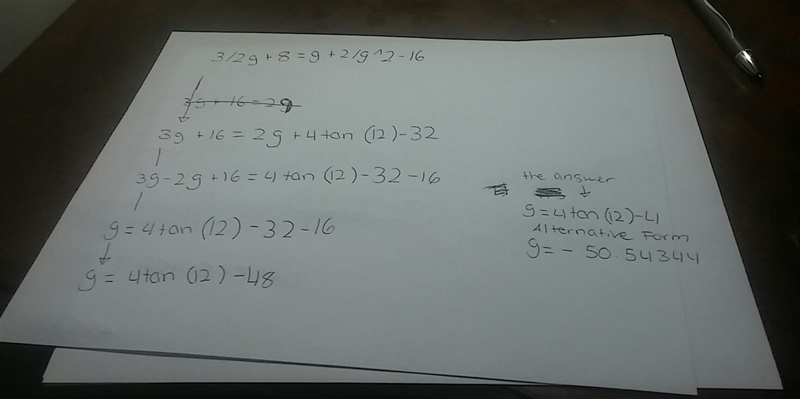 3/2g + 8 = g + 2/g^2 - 16
3g + 16 = 2g
3g + 16 = 2g + 4tan (12) - 32
3g - 2g + 16 = 4tan (12) - 32 - 16
g = 4tan (12) - 32 - 16
g = 4tan (12) - 48
the answer
g = 4tan (12) - 41
Alternative Form
g = - 50.54344